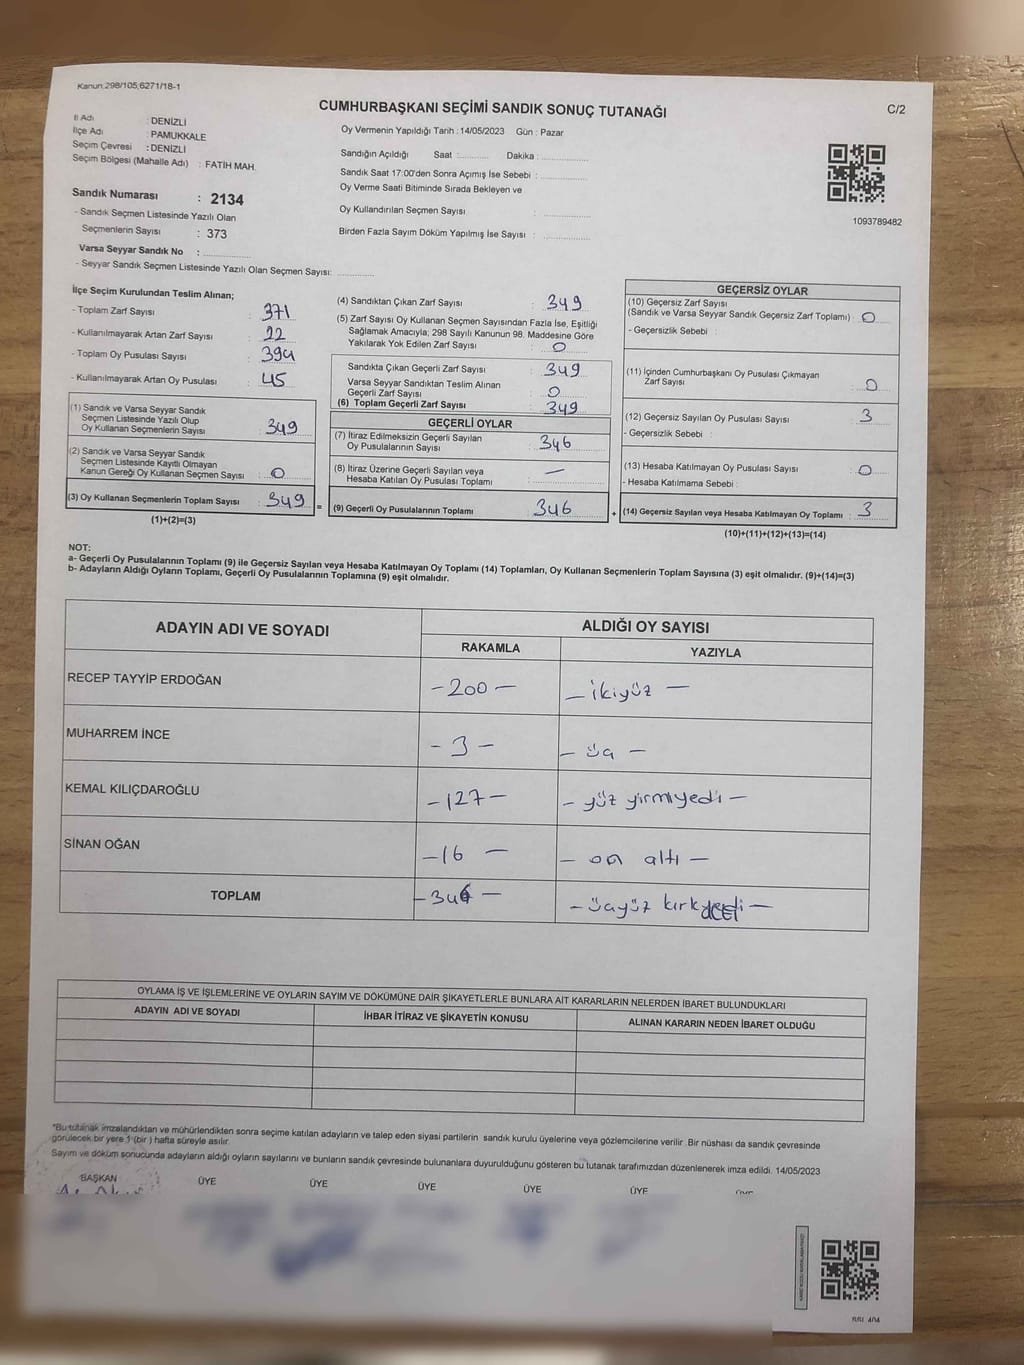 Kanun.298/105;6271/18-1
CUMHURBAŞKANI SEÇİMİ SANDIK SONUÇ TUTANAĞI
C/2
İl Adı : DENİZLİ
İlçe Adı : PAMUKKALE
Seçim Çevresi : DENİZLİ
Seçim Bölgesi (Mahalle Adı) : FATİH MAH.
Oy Vermenin Yapıldığı Tarih : 14/05/2023 Gün : Pazar
Sandığın Açıldığı Saat :........... Dakika :................
Sandık Saat 17:00'den Sonra Açımış İse Sebebi :................
Oy Verme Saati Bitiminde Sırada Bekleyen ve
Oy Kullandırılan Seçmen Sayısı :................
Birden Fazla Sayım Döküm Yapılmış İse Sayısı :................
1093789482
Sandık Numarası : 2134
- Sandık Seçmen Listesinde Yazılı Olan
Seçmenlerin Sayısı : 373
Varsa Seyyar Sandık No :................
- Seyyar Sandık Seçmen Listesinde Yazılı Olan Seçmen Sayısı:............
İlçe Seçim Kurulundan Teslim Alınan;
- Toplam Zarf Sayısı : 371
- Kullanılmayarak Artan Zarf Sayısı : 22
- Toplam Oy Pusulası Sayısı : 394
- Kullanılmayarak Artan Oy Pusulası : 45
(1) Sandık ve Varsa Seyyar Sandık
Seçmen Listesinde Yazılı Olup
Oy Kullanan Seçmenlerin Sayısı : 349
(2) Sandık ve Varsa Seyyar Sandık
Seçmen Listesinde Kayıtlı Olmayan
Kanun Gereği Oy Kullanan Seçmen Sayısı : 0
(3) Oy Kullanan Seçmenlerin Toplam Sayısı : 349 =
(1)+(2)=(3)
(4) Sandıktan Çıkan Zarf Sayısı : 349
(5) Zarf Sayısı Oy Kullanan Seçmen Sayısından Fazla İse, Eşitliği
Sağlamak Amacıyla; 298 Sayılı Kanunun 98. Maddesine Göre
Yakılarak Yok Edilen Zarf Sayısı : 0
Sandıkta Çıkan Geçerli Zarf Sayısı : 349
Varsa Seyyar Sandıktan Teslim Alınan
Geçerli Zarf Sayısı : 0
(6) Toplam Geçerli Zarf Sayısı : 349
GEÇERLİ OYLAR
(7) İtiraz Edilmeksizin Geçerli Sayılan
Oy Pusulalarının Sayısı : 346
(8) İtiraz Üzerine Geçerli Sayılan veya
Hesaba Katılan Oy Pusulası Toplamı : —
(9) Geçerli Oy Pusulalarının Toplamı : 346 +
GEÇERSİZ OYLAR
(10) Geçersiz Zarf Sayısı
(Sandık ve Varsa Seyyar Sandık Geçersiz Zarf Toplamı) : 0
- Geçersizlik Sebebi :
(11) İçinden Cumhurbaşkanı Oy Pusulası Çıkmayan
Zarf Sayısı : 0
(12) Geçersiz Sayılan Oy Pusulası Sayısı : 3
- Geçersizlik Sebebi :
(13) Hesaba Katılmayan Oy Pusulası Sayısı : 0
- Hesaba Katılmama Sebebi :
(14) Geçersiz Sayılan veya Hesaba Katılmayan Oy Toplamı : 3
(10)+(11)+(12)+(13)=(14)
NOT:
a- Geçerli Oy Pusulalarının Toplamı (9) ile Geçersiz Sayılan veya Hesaba Katılmayan Oy Toplamı (14) Toplamları, Oy Kullanan Seçmenlerin Toplam Sayısına (3) eşit olmalıdır. (9)+(14)=(3)
b- Adayların Aldığı Oyların Toplamı, Geçerli Oy Pusulalarının Toplamına (9) eşit olmalıdır.
ADAYIN ADI VE SOYADI
ALDIĞI OY SAYISI
RAKAMLA YAZIYLA
RECEP TAYYİP ERDOĞAN -200- -ikiyüz-
MUHARREM İNCE -3- -üç-
KEMAL KILIÇDAROĞLU -127- -yüz yirmiyedi-
SİNAN OĞAN -16- -on altı-
TOPLAM -346- -üçyüz kırk
OYLAMA İŞ VE İŞLEMLERİNE VE OYLARIN SAYIM VE DÖKÜMÜNE DAİR ŞİKAYETLERLE BUNLARA AİT KARARLARIN NELERDEN İBARET BULUNDUKLARI
ADAYIN ADI VE SOYADI İHBAR İTİRAZ VE ŞİKAYETİN KONUSU ALINAN KARARIN NEDEN İBARET OLDUĞU
*Bu tutanak imzalandıktan ve mühürlendikten sonra seçime katılan adayların ve talep eden siyasi partilerin sandık kurulu üyelerine veya gözlemcilerine verilir. Bir nüshası da sandık çevresinde
görülecek bir yere 1 (bir) hafta süreyle asılır.
Sayım ve döküm sonucunda adayların aldığı oyların sayılarını ve bunların sandık çevresinde bulunanlara duyurulduğunu gösteren bu tutanak tarafımızdan düzenlenerek imza edildi. 14/05/2023
BAŞKAN ÜYE ÜYE ÜYE ÜYE ÜYE